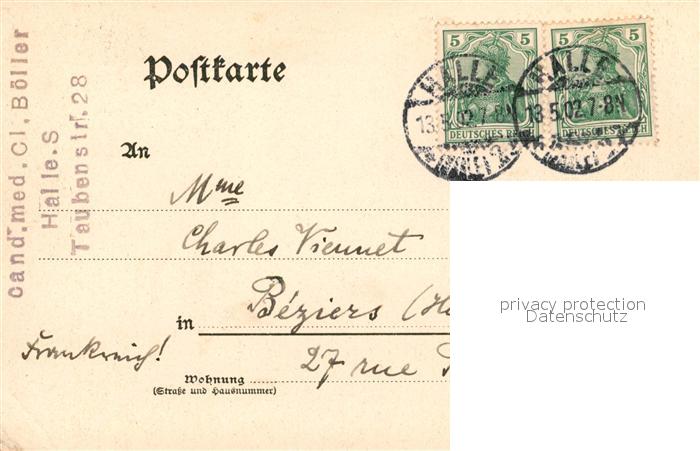 Cand.med.Cl.Böller
Halle.S
Taubenstr.28
Postkarte
5 5 5 5
HALLE HALLE
13.5.02.7-8N 13.5.02.7-8N
(SAALE) (SAALE)
DEUTSCHES REICH DEUTSCHES REICH
An
Mme
Charles Viennet
Béziers (He
in
Frankreich!
27 rue
Wohnung
(Straße und Hausnummer)
privacy protection
Datenschutz